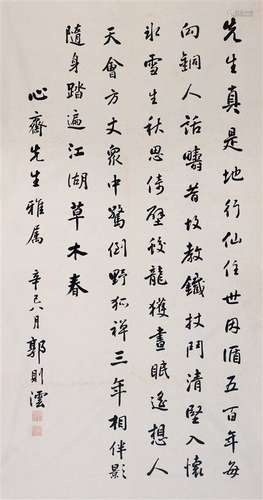 先生真是地行仙住世因循五百年每
向銅人話疇昔故教鐵杖鬥清堅入懷
氷雪生秋思倚壁蛟龍護晝眠遙想人
天會方丈眾中驚倒野狐禪三年相伴影
隨身踏遍江湖草木春
心齋先生雅屬 辛巳八月郭則澐